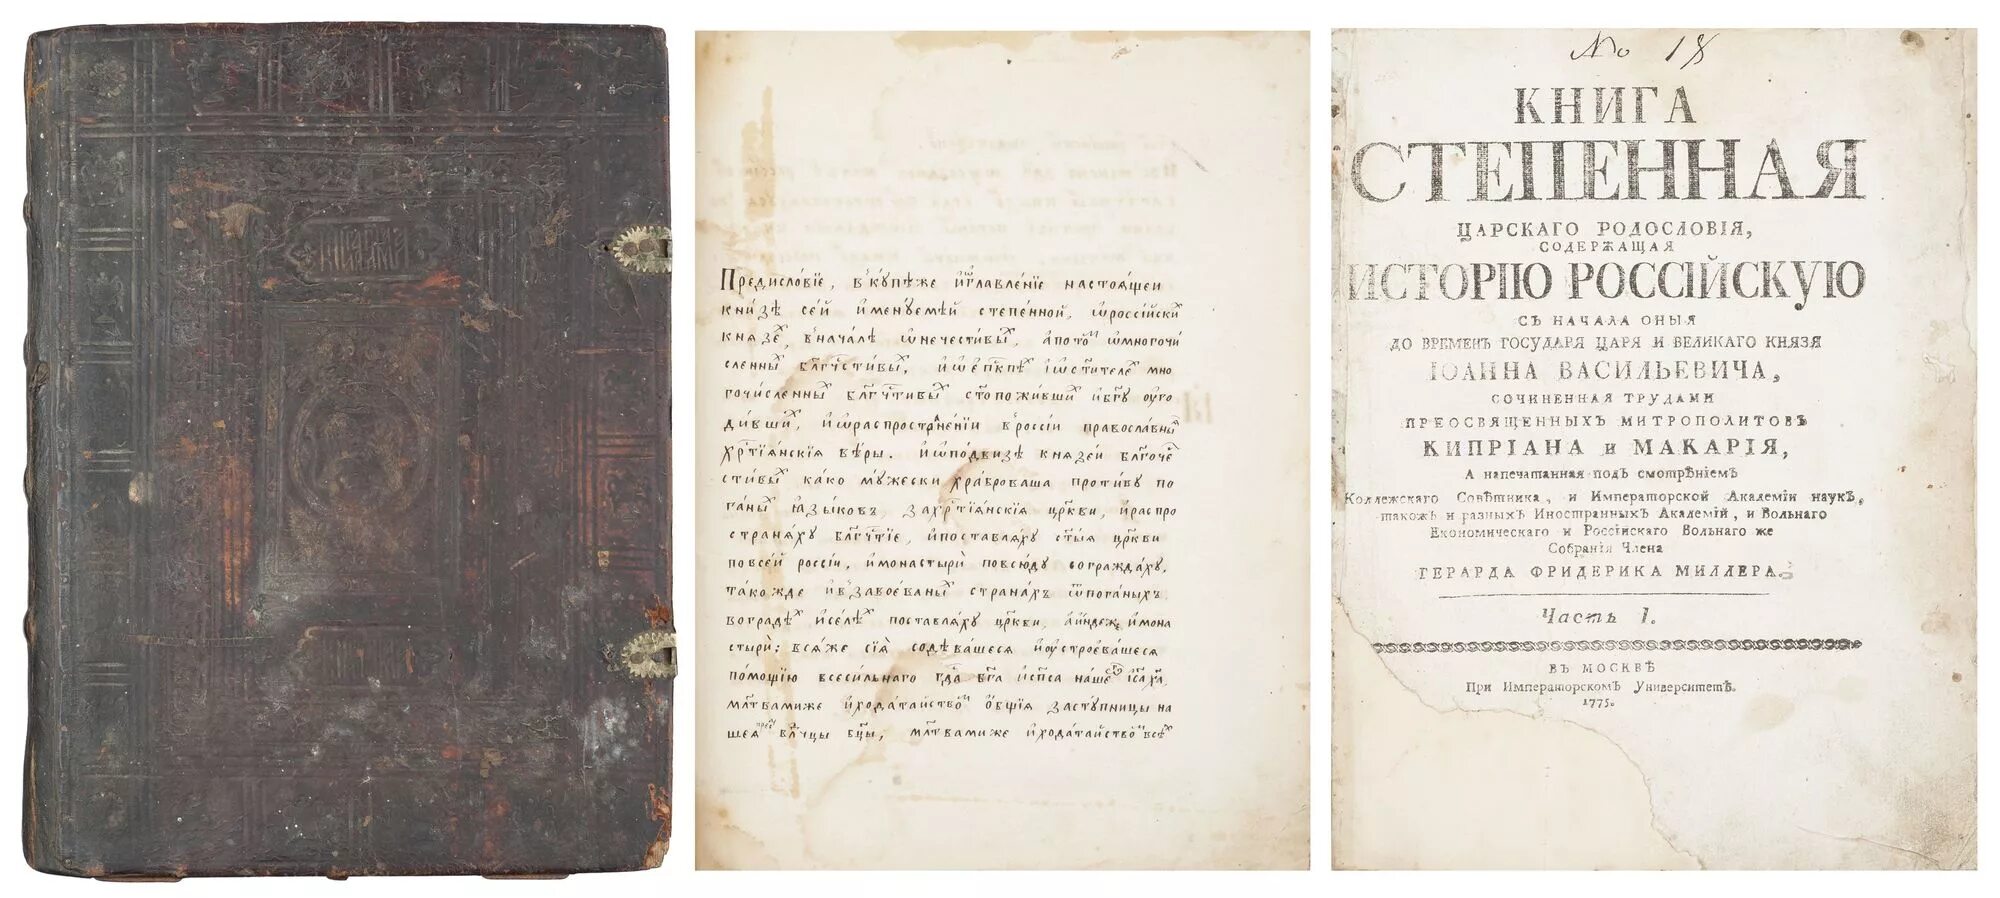 КНИГА ГЛ҃ЕМАѦ
Предислов́їе, вкꙋпѣже и҆ ѡ҆главлен́їе настоѧ́щеи
кни́зѣ се́й и҆менꙋ́емѣй степе́нной, ѡ҆росс́їйски
князе́х, вн҆ача́лѣ ѡ҆нечести́вых, а҆пото́м ѡ҆многочи́
сленных бл҃гчсти́вых, и҆ѡ҆е҆пк҃пѣ и҆ѡ҆ст҃и́телех мно
гочи́сленных бл҃гчти́вых ст҃опожи́вших и҆бг҃ꙋ ᲂу҆го
ди́вших, и҆ѡ҆распростране́нїи вро҆сс́їи правосла́вныѧ
хрⷭ҇тїѧ́нскїѧ вѣ́ры. и҆ѡ҆по́двизѣ князе́й бл҃гоче
сти́вых ка́ко мꙋ́жески хра́броваша проти́вꙋ по
га́ных ꙗ҆зы́ковъ, захрⷭ҇тїѧ́нскїѧ цр҃кви, и҆распро
странѧ́хꙋ бл҃гчⷭ҇тїе, и҆поставлѧ́хꙋ ст҃ы́ѧ цр҃кви
повсе́й росс́їи, и҆монастырѝ повсю́дꙋ согражда́хꙋ,
та́кожде и҆взавоева́ных страна́хъ ѿпога́ныхъ
вогра́дѣх и҆се́лѣх поставлѧ́хꙋ цр҃кви, а҆и҆ндѣ́же, и҆мона
стырѝ: всѧ́же сїѧ̑ содѣ́вашеся и҆ᲂу҆строе́вашеся
по́мощїю всеси́льнаго гд҃а бг҃а и҆сп҃са на́шего і҆с҃а хр҃та̀,
мл҃твамиже и҆хода́тайством о҆́бщїѧ засту́пницы на
шеѧ̀ прес влⷣчцы бц҃ы, мл҃твамиже и҆хода́тайством всѣ́х
No 18
КНИГА
СТЕПЕННАЯ
ЦАРСКАГО РОДОСЛОВІЯ,
СОДЕРЖАЩАЯ
ИСТОРІЮ РОССІЙСКУЮ
СЪ НАЧАЛА ОНЫЯ
ДО ВРЕМЕНЪ ГОСУДАРЯ ЦАРЯ И ВЕЛИКАГО КНЯЗЯ
ІОАННА ВАСИЛЬЕВИЧА,
СОЧИНЕННАЯ ТРУДАМИ
ПРЕОСВЯЩЕННЫХЪ МИТРОПОЛИТОВЪ
КИПРІАНА и МАКАРІЯ,
А напечатанная подъ смотрѣніемъ
Коллежскаго Совѣтника, и Императорской Академіи наукъ,
такожъ и разныхъ Иностранныхъ Академій, и Вольнаго
Економическаго и Россійскаго Вольнаго же
Собранія Члена
ГЕРАРДА ФРИДЕРИКА МИЛЛЕРА.
Часть I.
ВЪ МОСКВѢ
При Императорскомъ Университетѣ.
1775.